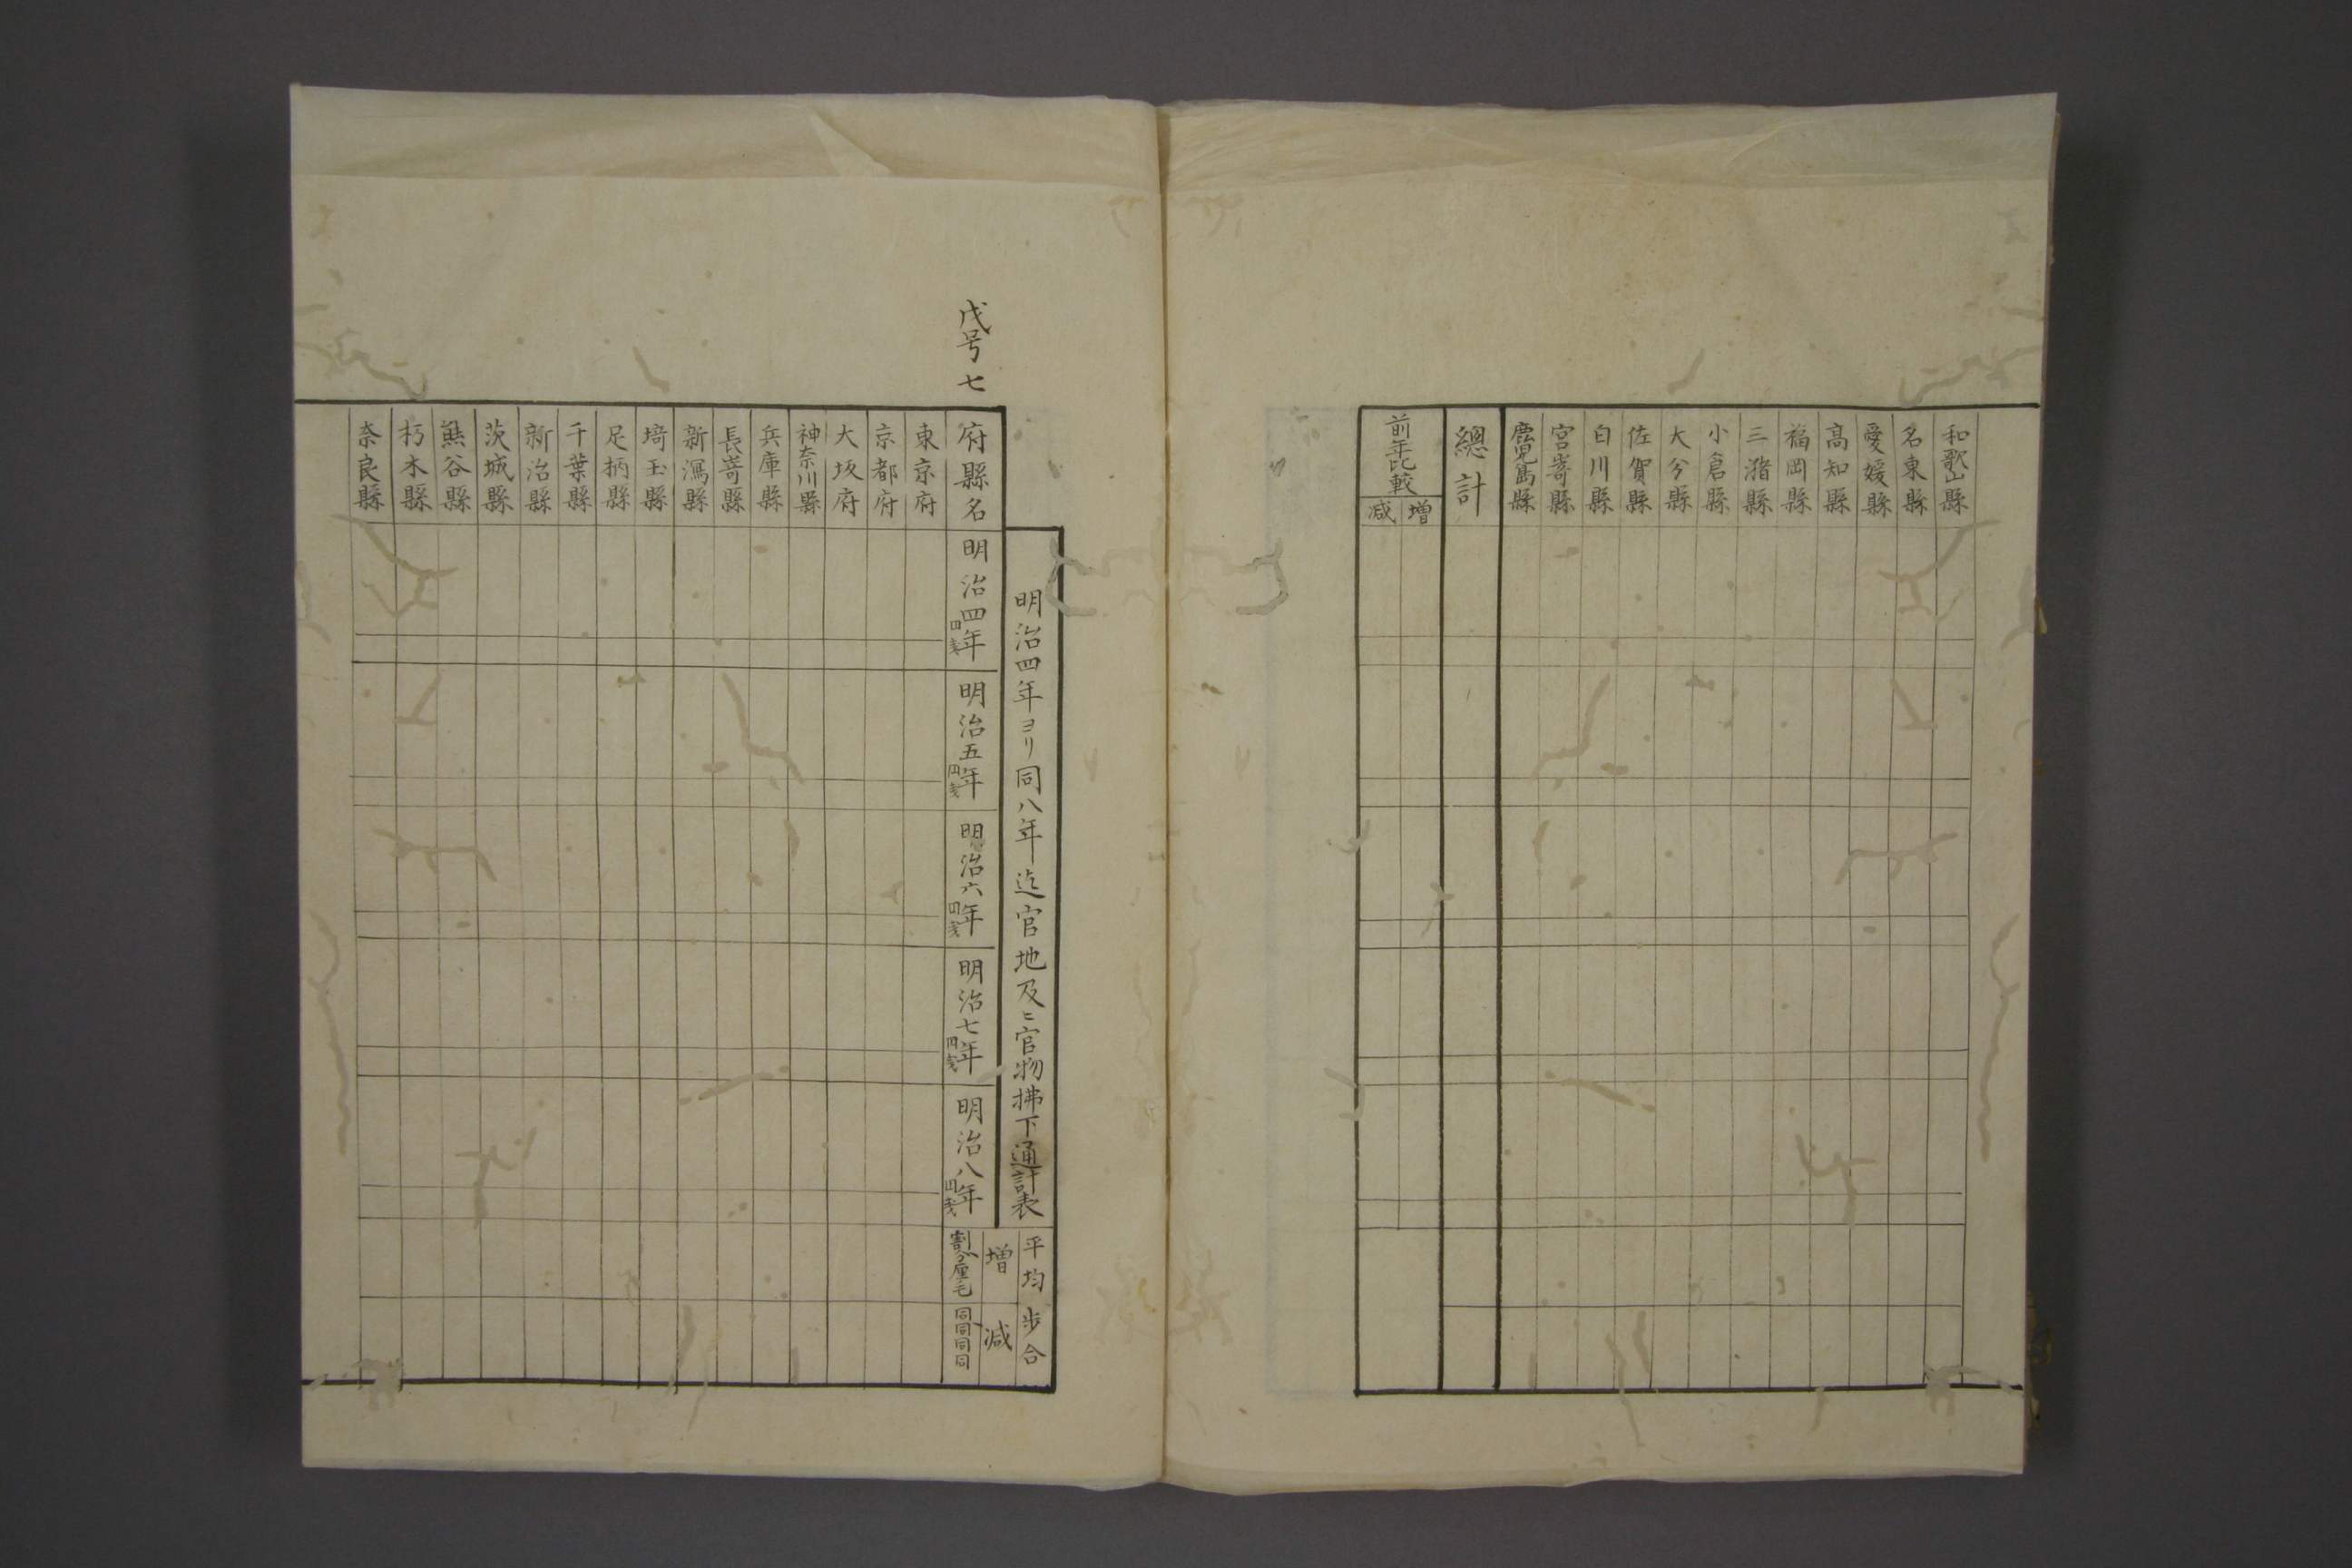 和歌山縣
名東縣
愛媛縣
高知縣
福岡縣
三潴縣
小倉縣
大分縣
佐賀縣
白川縣
宮嵜縣
鹿児島縣
總計
前年比較
増
減
戊号七
明治四年ヨリ同八年迄官地及ヒ官物拂下通計表
平均歩合
増
減
府縣名
明治四年
円
銭
明治五年
円
銭
明治六年
円
銭
明治七年
円
銭
明治八年
円
銭
割分厘毛
同同同同
東京府
京都府
大坂府
神奈川縣
兵庫縣
長嵜縣
新潟縣
埼玉縣
足柄縣
千葉縣
新治縣
茨城縣
熊谷縣
朽木縣
奈良縣